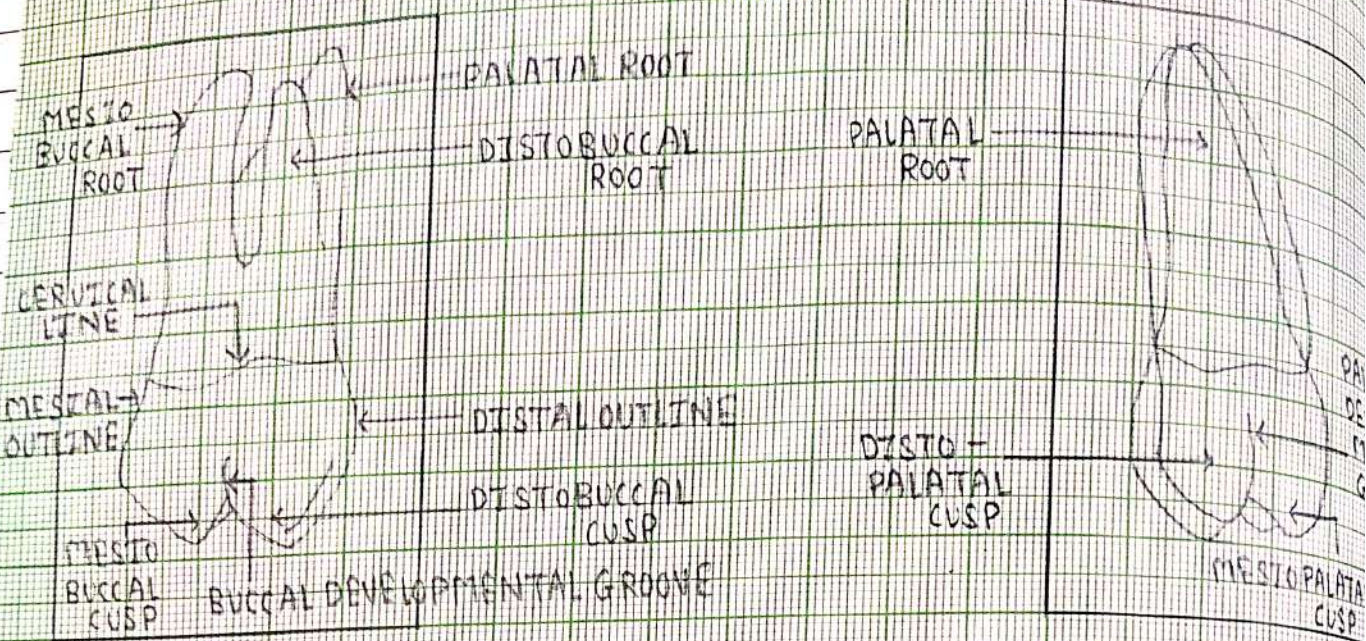 PALATAL ROOT
MESIO
BUCCAL
ROOT
DISTOBUCCAL
ROOT
CERVICAL
LINE
MESIAL
OUTLINE
DISTAL OUTLINE
DISTOBUCCAL
CUSP
MESIO
BUCCAL
CUSP
BUCCAL DEVELOPMENTAL GROOVE
PALATAL
ROOT
DISTO-
PALATAL
CUSP
PA
DE
G
MESIOPALATA
CUSP